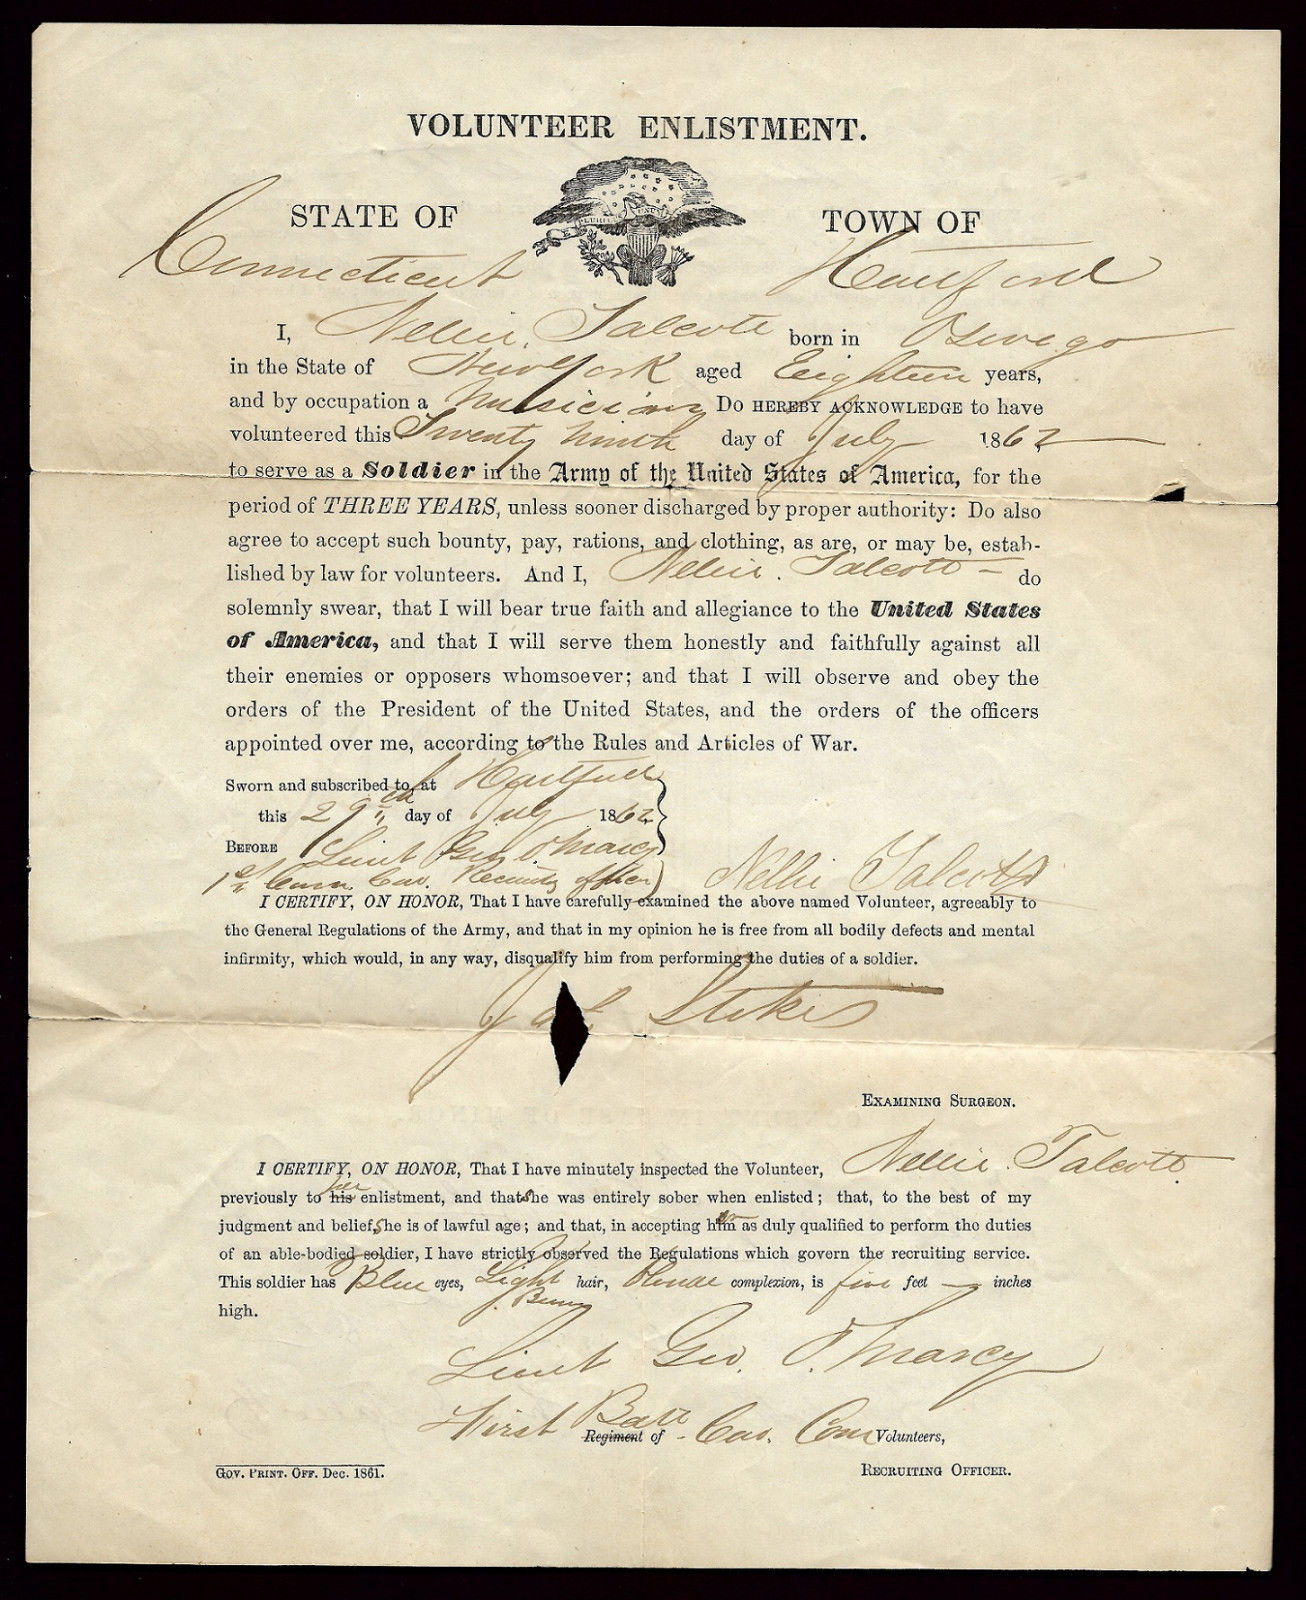 VOLUNTEER ENLISTMENT.
STATE OF TOWN OF
Connecticut Hartford
I, Nellie Talcott born in Oswego
in the State of New York aged Eighteen years,
and by occupation a Musician Do HEREBY ACKNOWLEDGE to have
volunteered this Twenty Ninth day of July 1862
to serve as a Soldier in the Army of the United States of America, for the
period of THREE YEARS, unless sooner discharged by proper authority: Do also
agree to accept such bounty, pay, rations, and clothing, as are, or may be, estab-
lished by law for volunteers. And I, Nellie Talcott do
solemnly swear, that I will bear true faith and allegiance to the United States
of America, and that I will serve them honestly and faithfully against all
their enemies or opposers whomsoever; and that I will observe and obey the
orders of the President of the United States, and the orders of the officers
appointed over me, according to the Rules and Articles of War.
Sworn and subscribed to, at Hartford
this 29th day of July 1862
BEFORE Lieut Geo O. Marcy
1st Conn. Cav. Recruiting officer Nellie Talcott
I CERTIFY, ON HONOR, That I have carefully examined the above named Volunteer, agreeably to
the General Regulations of the Army, and that in my opinion he is free from all bodily defects and mental
infirmity, which would, in any way, disqualify him from performing the duties of a soldier.
Stokes
EXAMINING SURGEON.
I CERTIFY, ON HONOR, That I have minutely inspected the Volunteer, Nellie Talcott
previously to his her enlistment, and that she was entirely sober when enlisted; that, to the best of my
judgment and belief, she is of lawful age; and that, in accepting her as duly qualified to perform the duties
of an able-bodied soldier, I have strictly observed the Regulations which govern the recruiting service.
This soldier has Blue eyes, Light hair, blonde complexion, is five feet — inches
high.
Lieut Geo. O. Marcy
First Batt Regiment of Cav. Conn Volunteers,
GOV. PRINT. OFF. Dec. 1861. RECRUITING OFFICER.